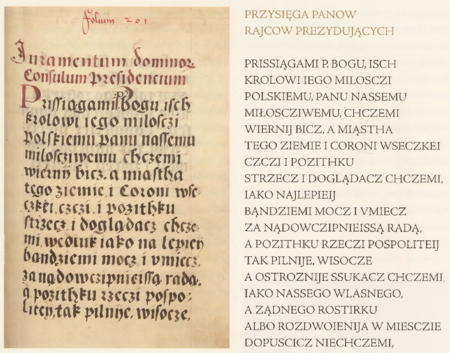 Folium 201
Juramentum dominor
Consulum presidencium
Prissiągami Bogu isch
krolowi iego milosczi
polskiemu panu nassemu
milosczivemu chczemi
wierny bicz, a miastha
tego ziemie, i Coroni wse
czkéi, czczi, i pozithku
strzecz, i doglądacz chcze
mi, wedluk iako na lepiey
bandziemi mocz, i vmiecz,
za nadowczipnieissą radą,
a pozithku rzeczi pospo-
litey, tak pilnye, wisocze,
PRZYSIĘGA PANOW
RAJCOW PREZYDUJĄCYCH
PRISSIĄGAMI P. BOGU, ISCH
KROLOWI IEGO MILOSCZI
POLSKIEMU, PANU NASSEMU
MIŁOSCZIWEMU, CHCZEMI
WIERNIJ BICZ, A MIĄSTHA
TEGO ZIEMIE I CORONI WSECZKEI
CZCZI I POZITHKU
STRZECZ I DOGLĄDACZ CHCZEMI,
IAKO NAJLEPIEIJ
BĄNDZIEMI MOCZ I VMIECZ
ZA NĄDOWCZIPNIEISSĄ RADĄ,
A POZITHKU RZECZI POSPOLITEIJ
TAK PILNIJE, WISOCZE
A OSTROZNIJE SSUKACZ CHCZEMI,
IAKO NASSEGO WLASNEGO,
A ZĄDNEGO ROSTIRKU
ALBO ROZDWOIENIJA W MIESCZIE
DOPUSCICZ NIECHCZEMI,